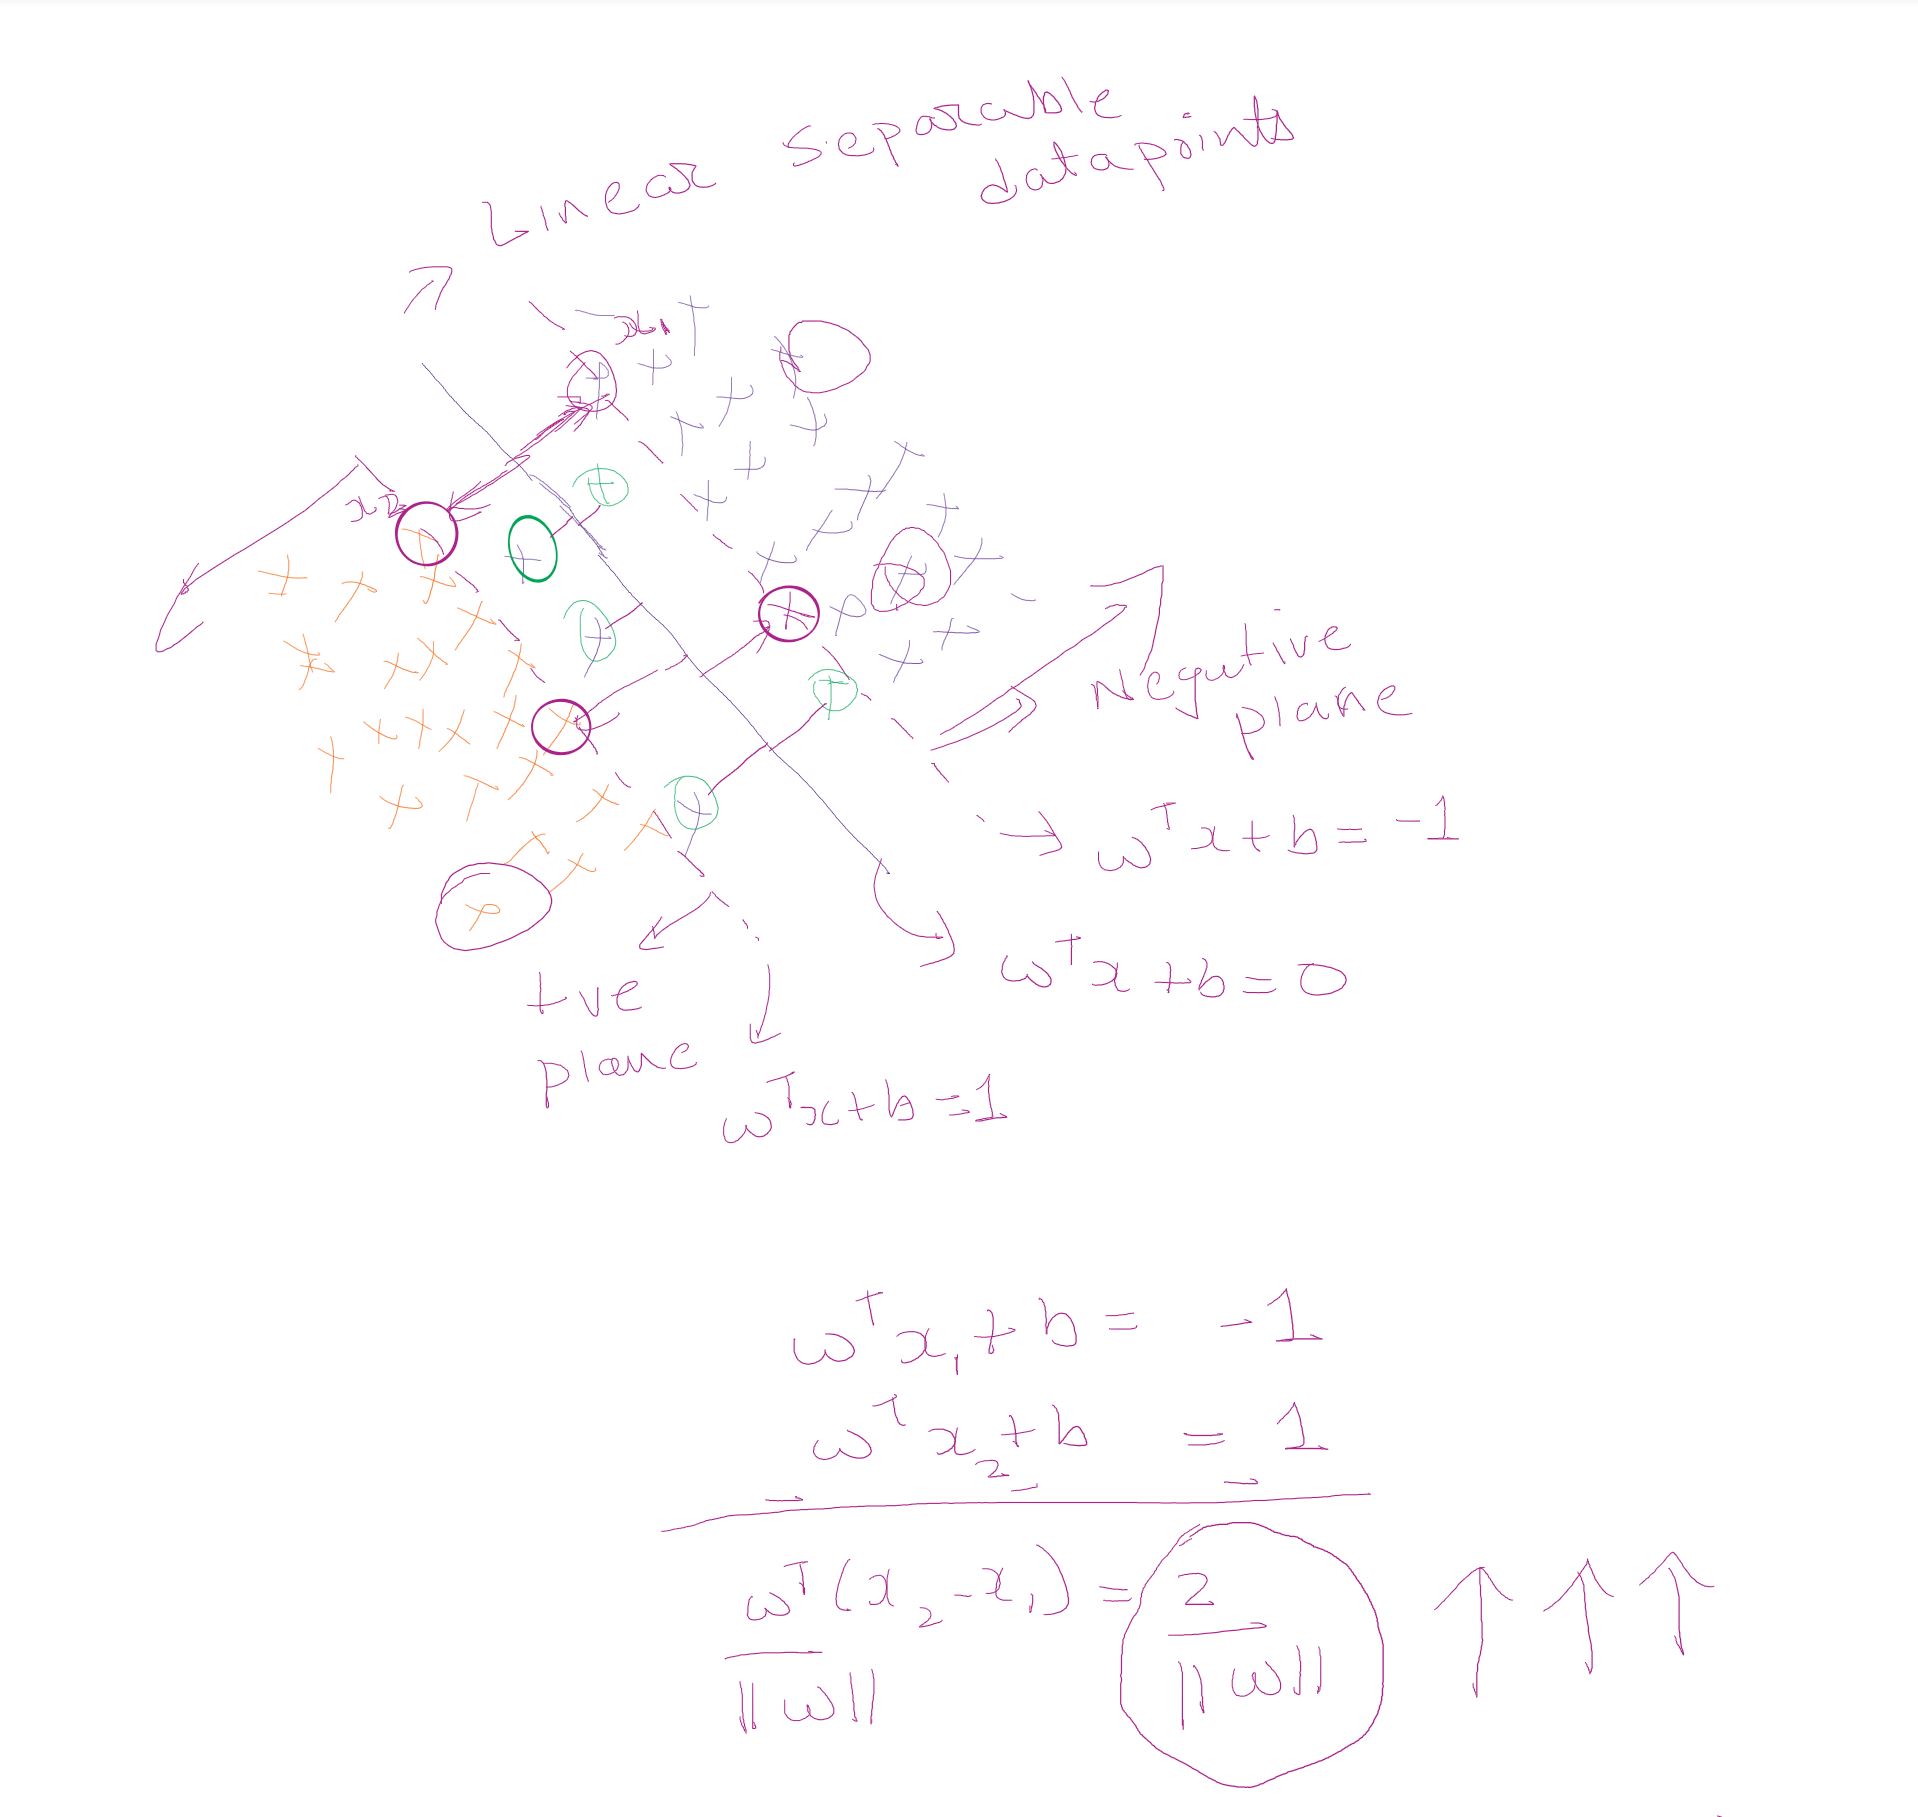 Linear Separable
datapoints
x1
x2
Negative
plane
ω^T x + b = -1
ω^T x + b = 0
+ve
plane
ω^T x + b = 1
ω^T x₁ + b = -1
ω^T x₂ + b = 1
- - -
ω^T (x₂ - x₁) = 2
||ω|| ||ω||